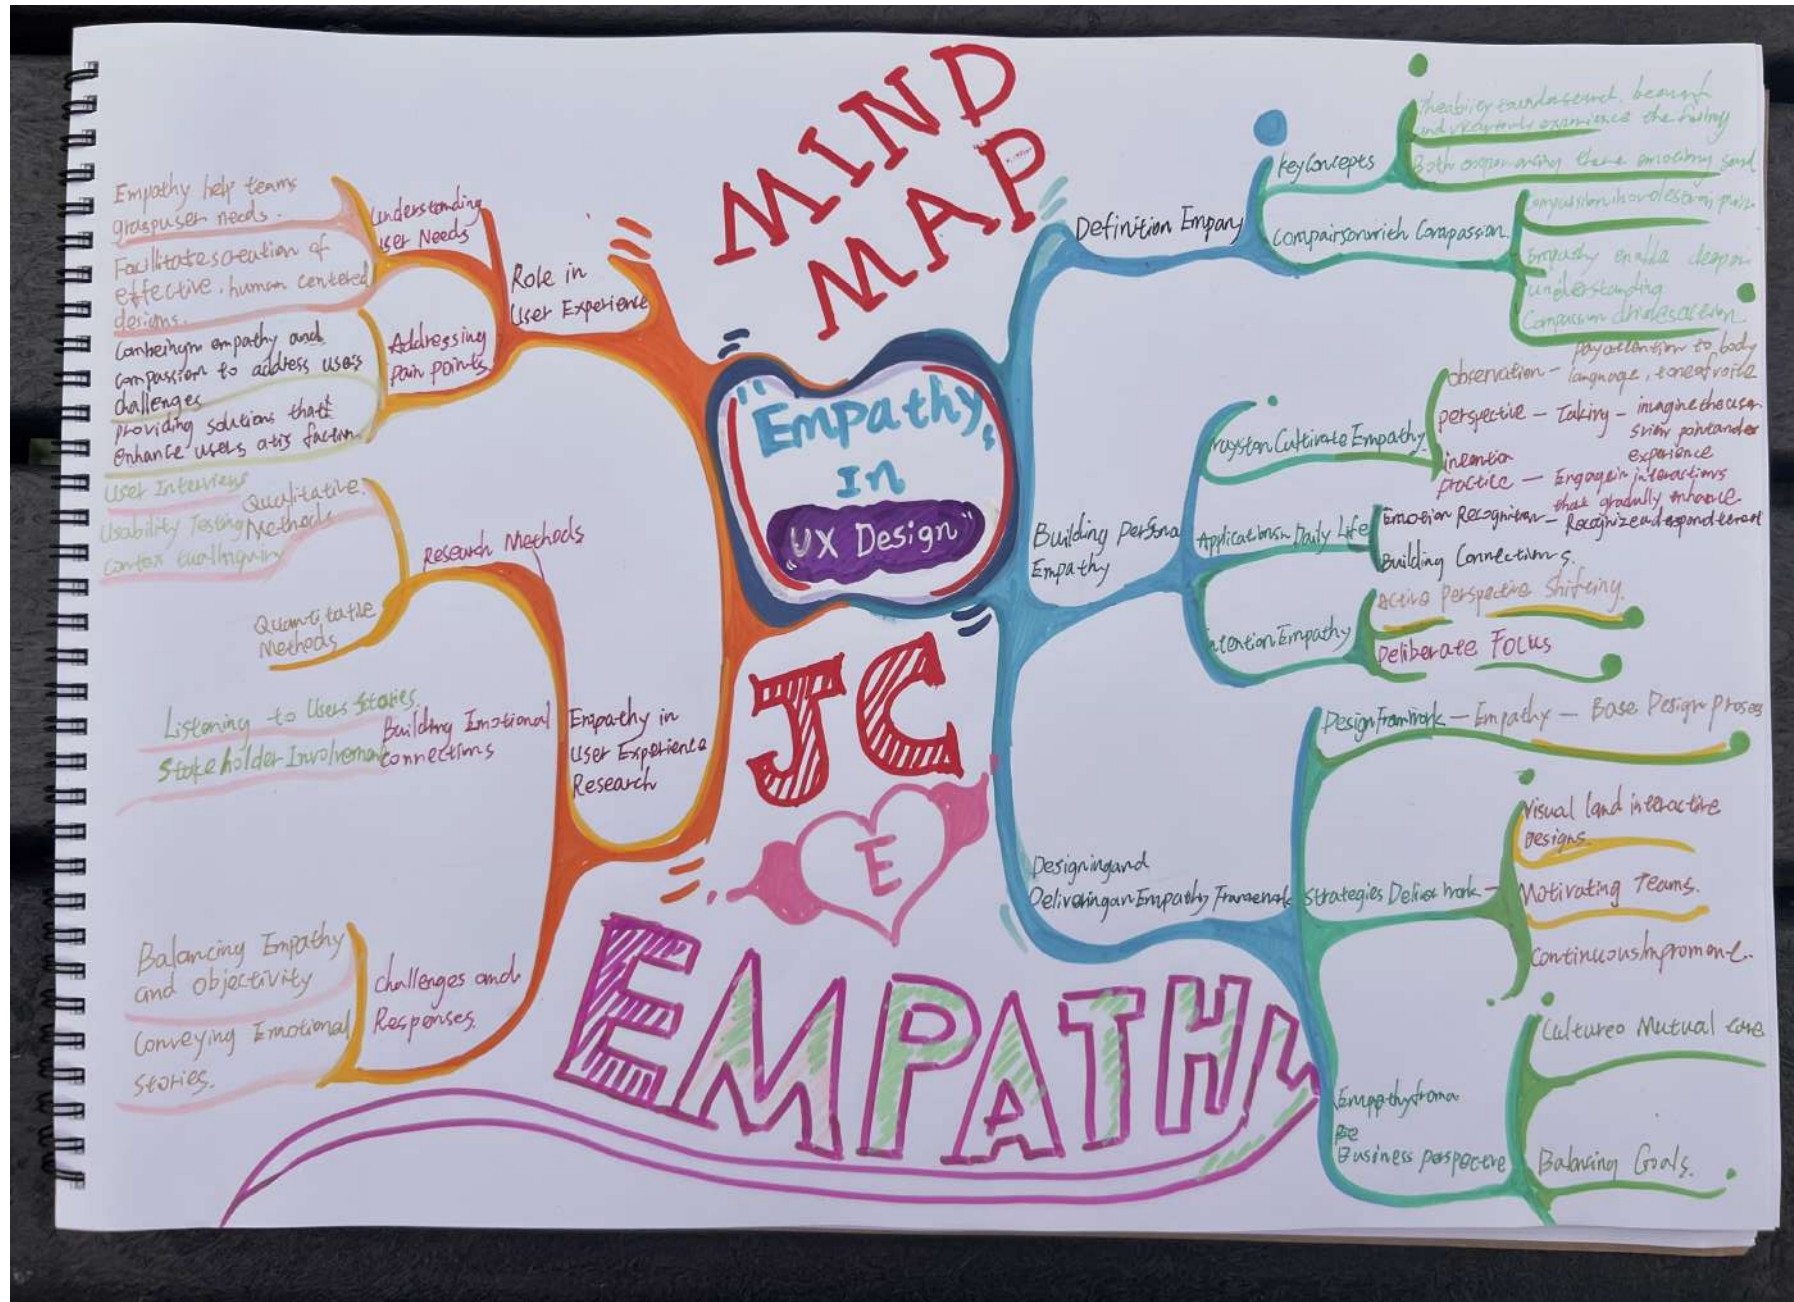 MIND
MAP
"Empathy
In
UX Design"
JC
E
EMPATHY
Role in
User Experience
Understanding
User Needs
Empathy help teams
graspuser needs.
Facilitatescreation of
effective, human centered
designs.
Addressing
pain points
empathy and
compassion to address users
challenges
providing solutions that
enhance users atis faction
Empathy in
User Experience
Research
Research Methods
Qualitative
Methods
User Interviews
Usability Testing
contextual Inquiry
Quantitative
Methods
Building Emotional
connections
Listening to Users Stories.
Stakeholder Involvement
Challenges and
Responses.
Balancing Empathy
and objectivity
Conveying Emotional
Stories.
Definition Empany
KeyConcepts
and experience the
Both experiencing
Compairsonwith Compassion
Empathy enable deeper
understanding
Compassion
Building Persona
Empathy
Cultivate Empathy
observation - pay attention to body
language, toneofvoice
perspective - Taking - imaginetheuser
experience
intention
practice - Engagein interactions
that gradually enhance
Applications Daily Life
Emotion Recognition -
Building Connections.
Intention Empathy
Active Perspective Shifting.
Deliberate Focus
Designingand
DeliveringanEmpathy
Design - Empathy - Base Design
Strategies
Visual land interactive
Designs.
Motivating Teams.
Empathyfroma
Be
Business perspective
Cultureo Mutual care
Balancing Goals.